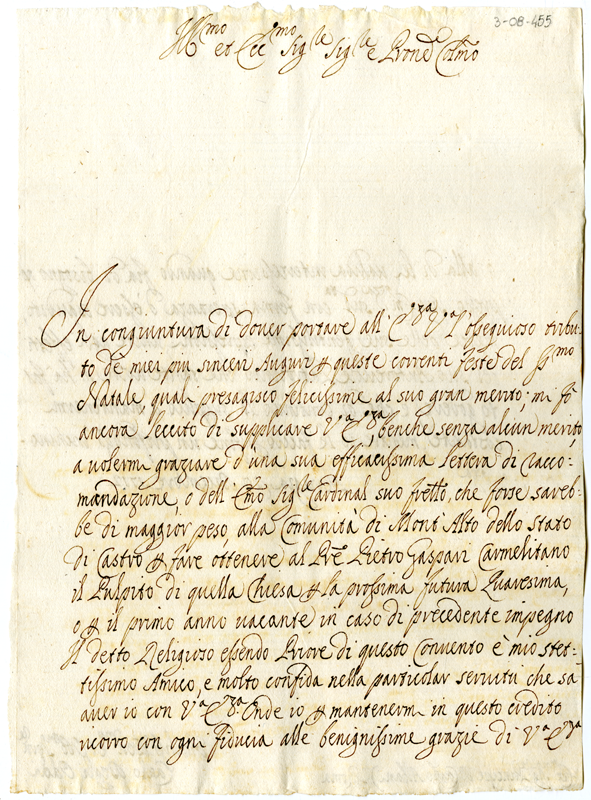 3-08-455
Ill.mo et Ecc.mo Sig.re Sig.re e Pron.e Col.mo
In congiuntura di dover portare all' E.za V.a l'ossequioso tribu-
to de miei più sinceri Auguri p queste correnti feste del S.mo
Natale, quali presagisco felicissime al suo gran merito; mi fò
ancora leccito di supplicare V.a E.za, benche senza alcun merito,
a volermi graziare d'una sua efficacissima lettera di racco=
mandazione, o dell' Emo Sig.re Cardinal suo frello, che forse sareb=
be di maggior peso, alla Comunità di Mont'Alto dello Stato
di Castro p fare ottenere al Pre Pietro Gaspari Carmelitano
il Pulpito di quella Chiesa p la prossima futura Quaresima,
o p il primo anno vacante in caso di precedente impegno
Il detto Religioso essendo Priore di questo Convento è mio stret=
tissimo Amico, e molto confida nella particolar servitù che sà
aver io con V.a E.za Onde io p mantenermi in questo credito
ricorro con ogni fiducia alle benignissime grazie di V.a E.za